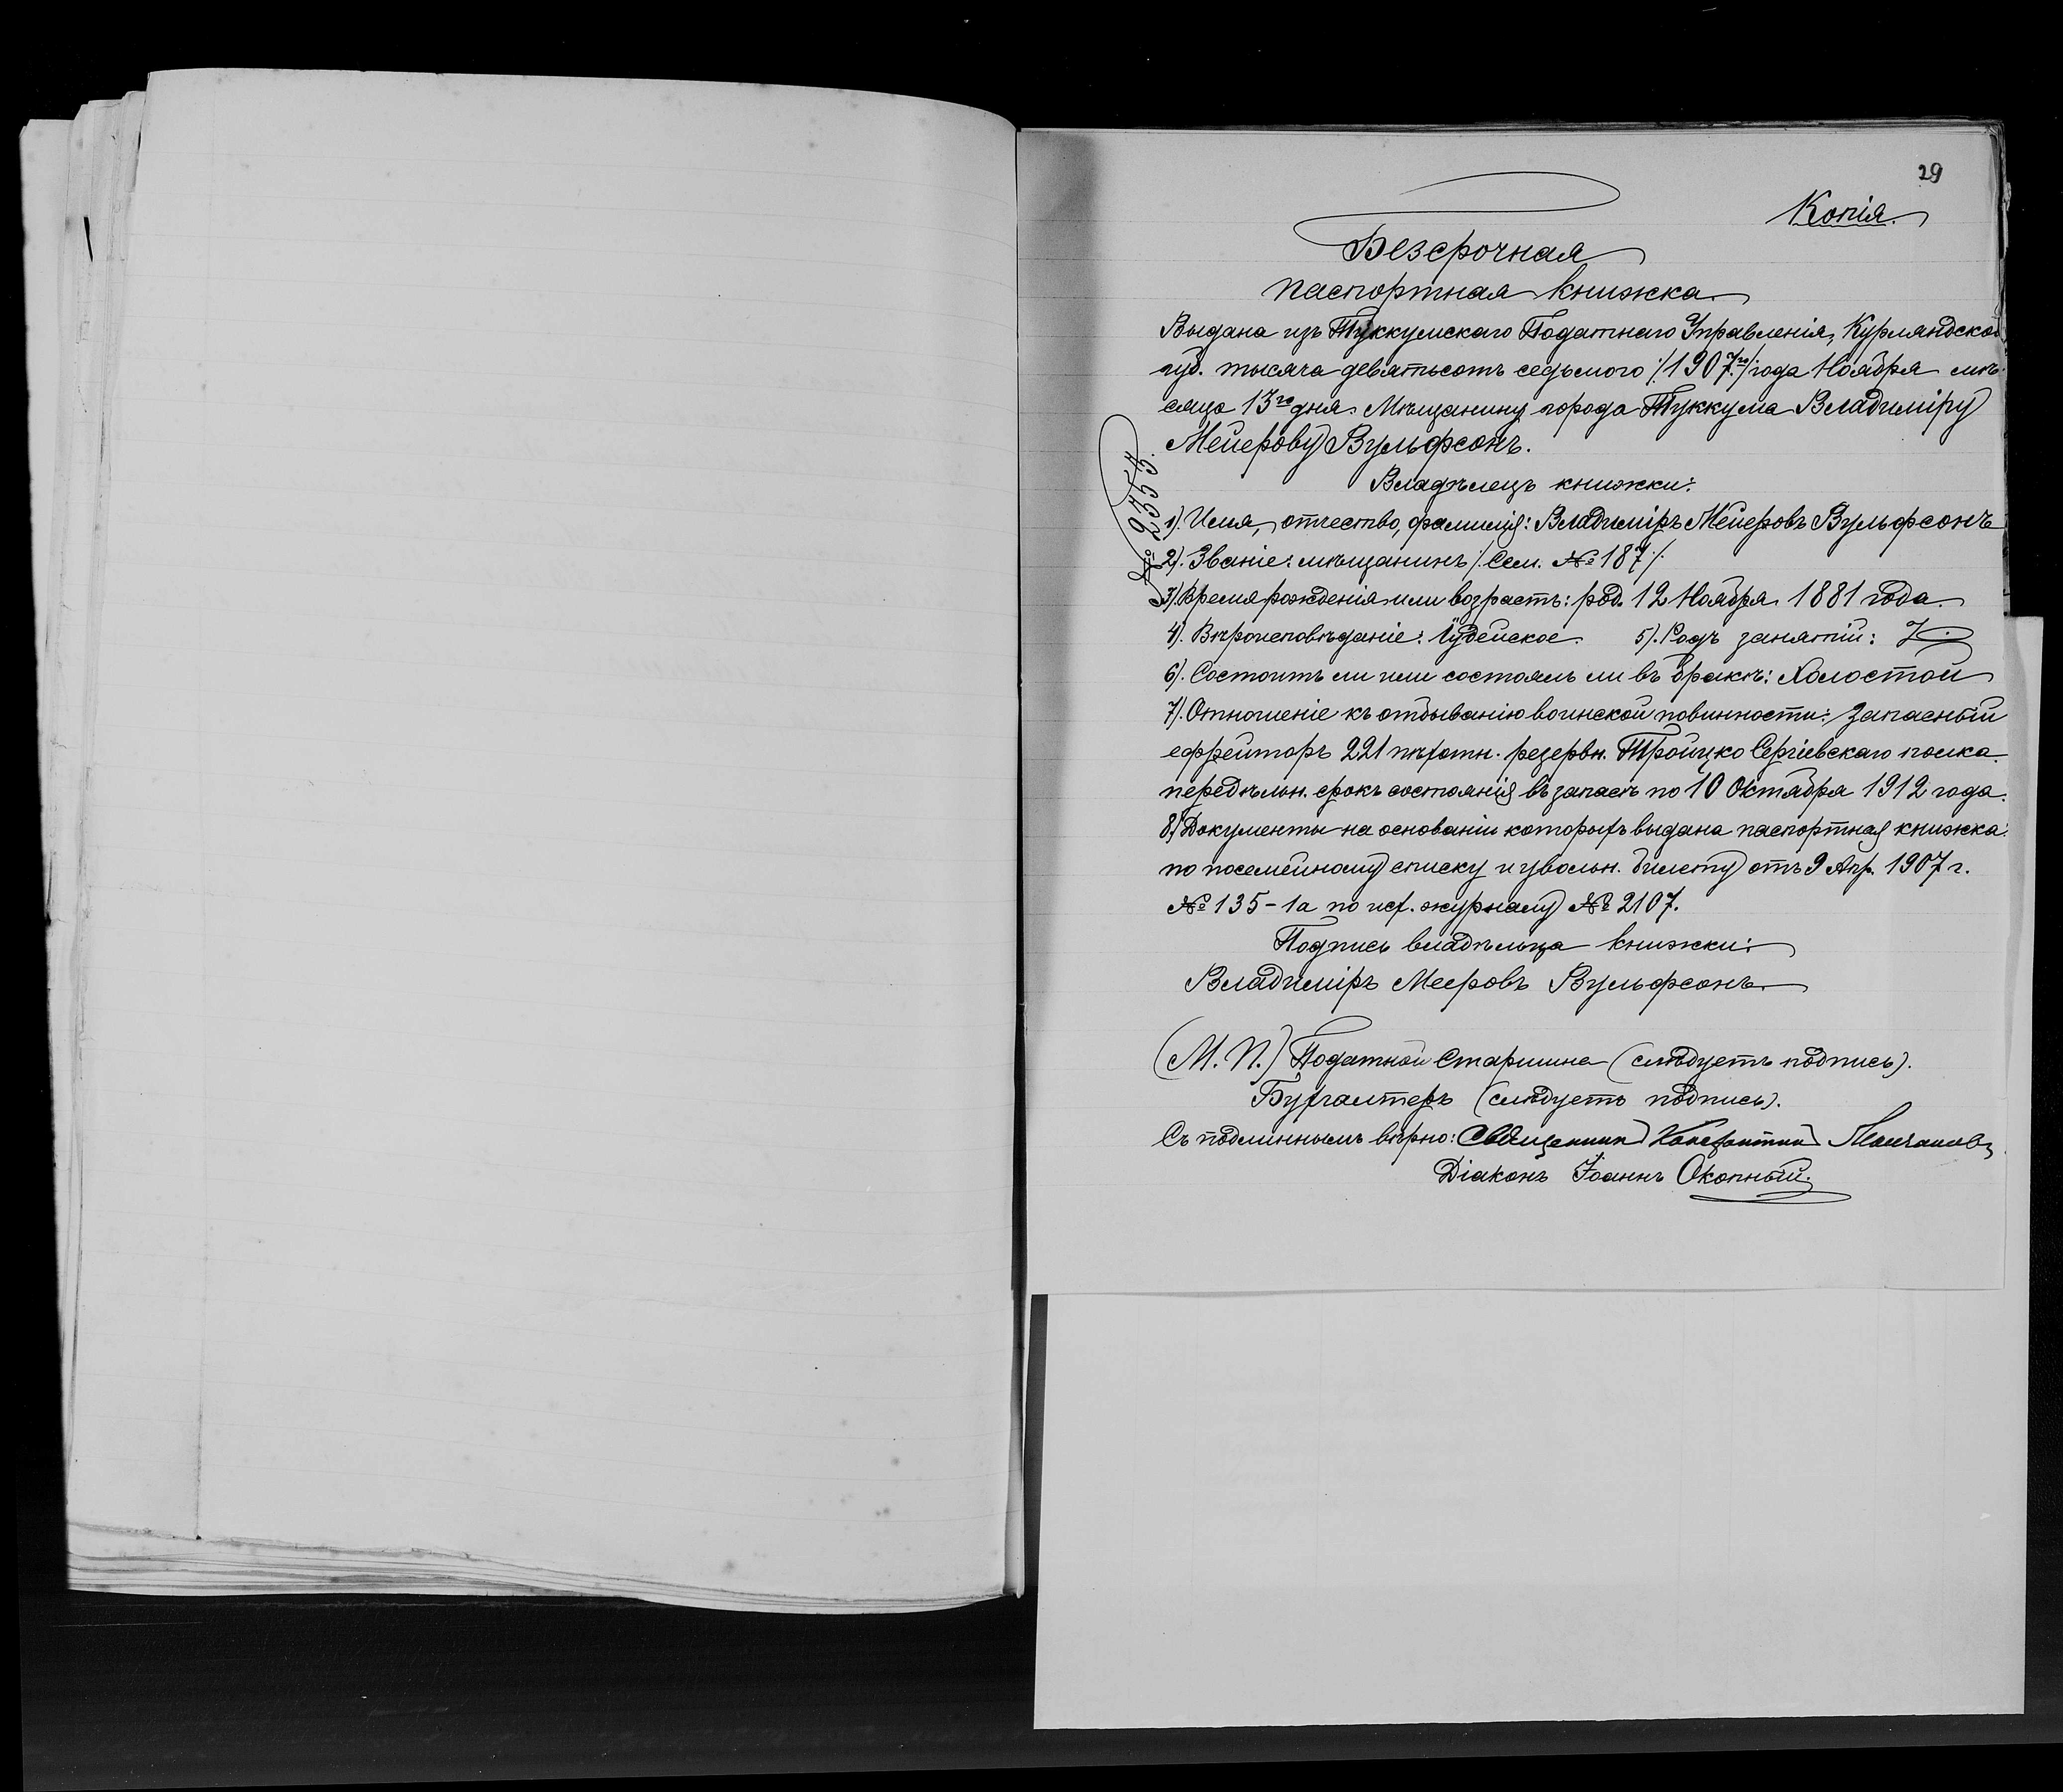 29
Копія.
Безсрочная
паспортная книжка
Выдана изъ Туккумскаго Податнаго Управленія, Курляндской
губ. тысяча девятьсотъ седьмого /:1907го:/ года Ноября мѣ-
сяца 13го дня. Мѣщанину города Туккума Владиміру
Мейерову Вульфсонъ.
№ 2353.
Владѣлецъ книжки:
1). Имя, отчество, фамилія: Владиміръ Мейеровъ Вульфсонъ
2). Званіе: мѣщанинъ /:Сем. № 187:/
3). Время рожденія или возрастъ: род. 12 Ноября 1881 года.
4). Вѣроисповѣданіе: Іудейское. 5). Родъ занятій:
6). Состоитъ ли или состоялъ ли въ бракѣ: Холостой
7). Отношеніе къ отбыванію воинской повинности: Запасный
ефрейторъ 221 пѣхотн. резервн. Троицко Сергіевскаго полка.
передѣльн. срокъ состоянія въ запасѣ по 10 Октября 1912 года.
8). Документы на основаніи которыхъ выдана паспортная книжка:
по посемейному списку и увольн. билету отъ 9 Апр. 1907 г.
№ 135-1а по исх. журналу № 2107.
Подпись владѣльца книжки:
Владиміръ Мееровъ Вульфсонъ
(М. П.) Податной Старшина (слѣдуетъ подпись).
Бухгалтеръ (слѣдуетъ подпись).
Съ подлиннымъ вѣрно: Священник Константин Молчановъ
Діаконъ Іоаннъ Окопный.